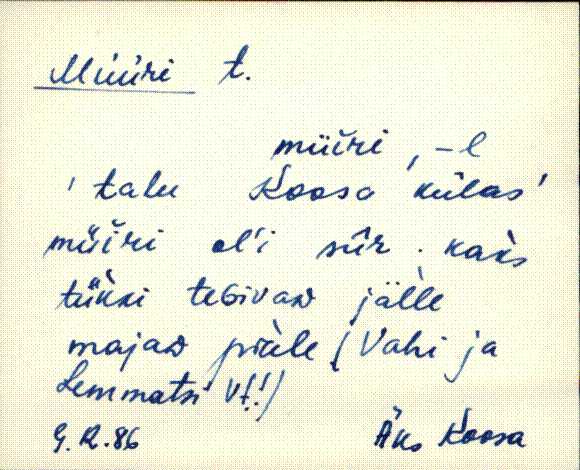 Müüri t.
müiri, -l
'talu Koosa külas'
müiri ol'i sûr. kaks
tükki tegivaD jälle
majaD piäle (Vahi ja
Lemmatsi Vt!)
G. R. 86 Äks Koosa